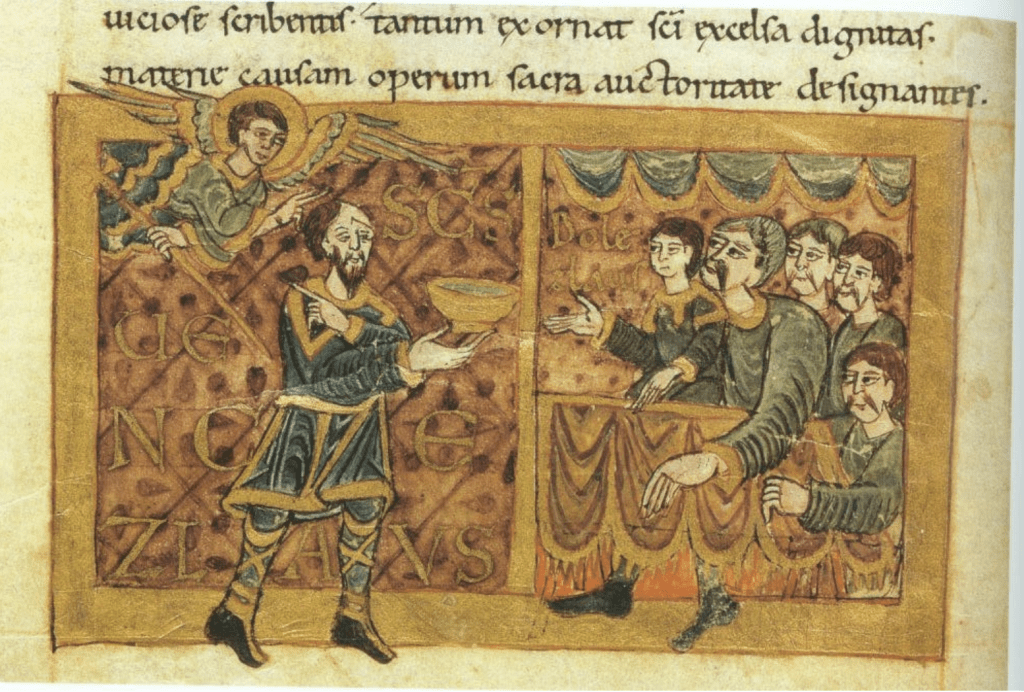 uiciose scribentis· tantum exornat sci excelsa dignitas·
materie causam operum sacra auctoritate designantes.
SCS
Bole
zlaus
UE
NC E
ZLAVS